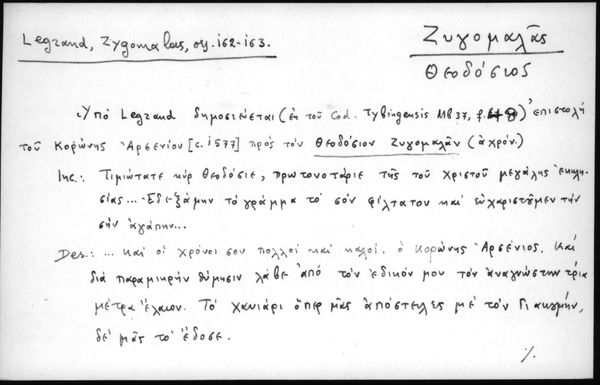 Legrand, Zygomalas, σσ. 162-163.
Ζυγομαλᾶς
Θεοδόσιος
Ὑπὸ Legrand δημοσιεύεται (ἐκ τοῦ Cod. Tybingensis Mb 37, f. 8) ἐπιστολὴ
τοῦ Κορώνης Ἀρσενίου [c. 1577] πρὸς τὸν Θεοδόσιον Ζυγομαλᾶν (ἀχρόν.)
Inc.: Τιμιώτατε κὺρ Θεοδόσιε, πρωτονοτάριε τῆς τοῦ Χριστοῦ μεγάλης ἐκκλη-
σίας... Ἐδεξάμην τὸ γράμμα τὸ σὸν φίλτατον καὶ εὐχαριστοῦμεν τὴν
σὴν ἀγάπην...
Des.: ... καὶ οἱ χρόνοι σου πολλοὶ καὶ καλοί. ὁ Κορώνης Ἀρσένιος. Καὶ
διὰ παραμικρὴν θύμησιν λάβε ἀπὸ τὸν ἐδικόν μου τὸν ἀναγνώστην τρία
μέτρα ἔλαιον. Τὸ χαυιάρι ὅπερ μᾶς ἀπόστειλες μὲ τὸν Γιακουμήν,
δὲ μᾶς τὸ ἔδοσε.
%.